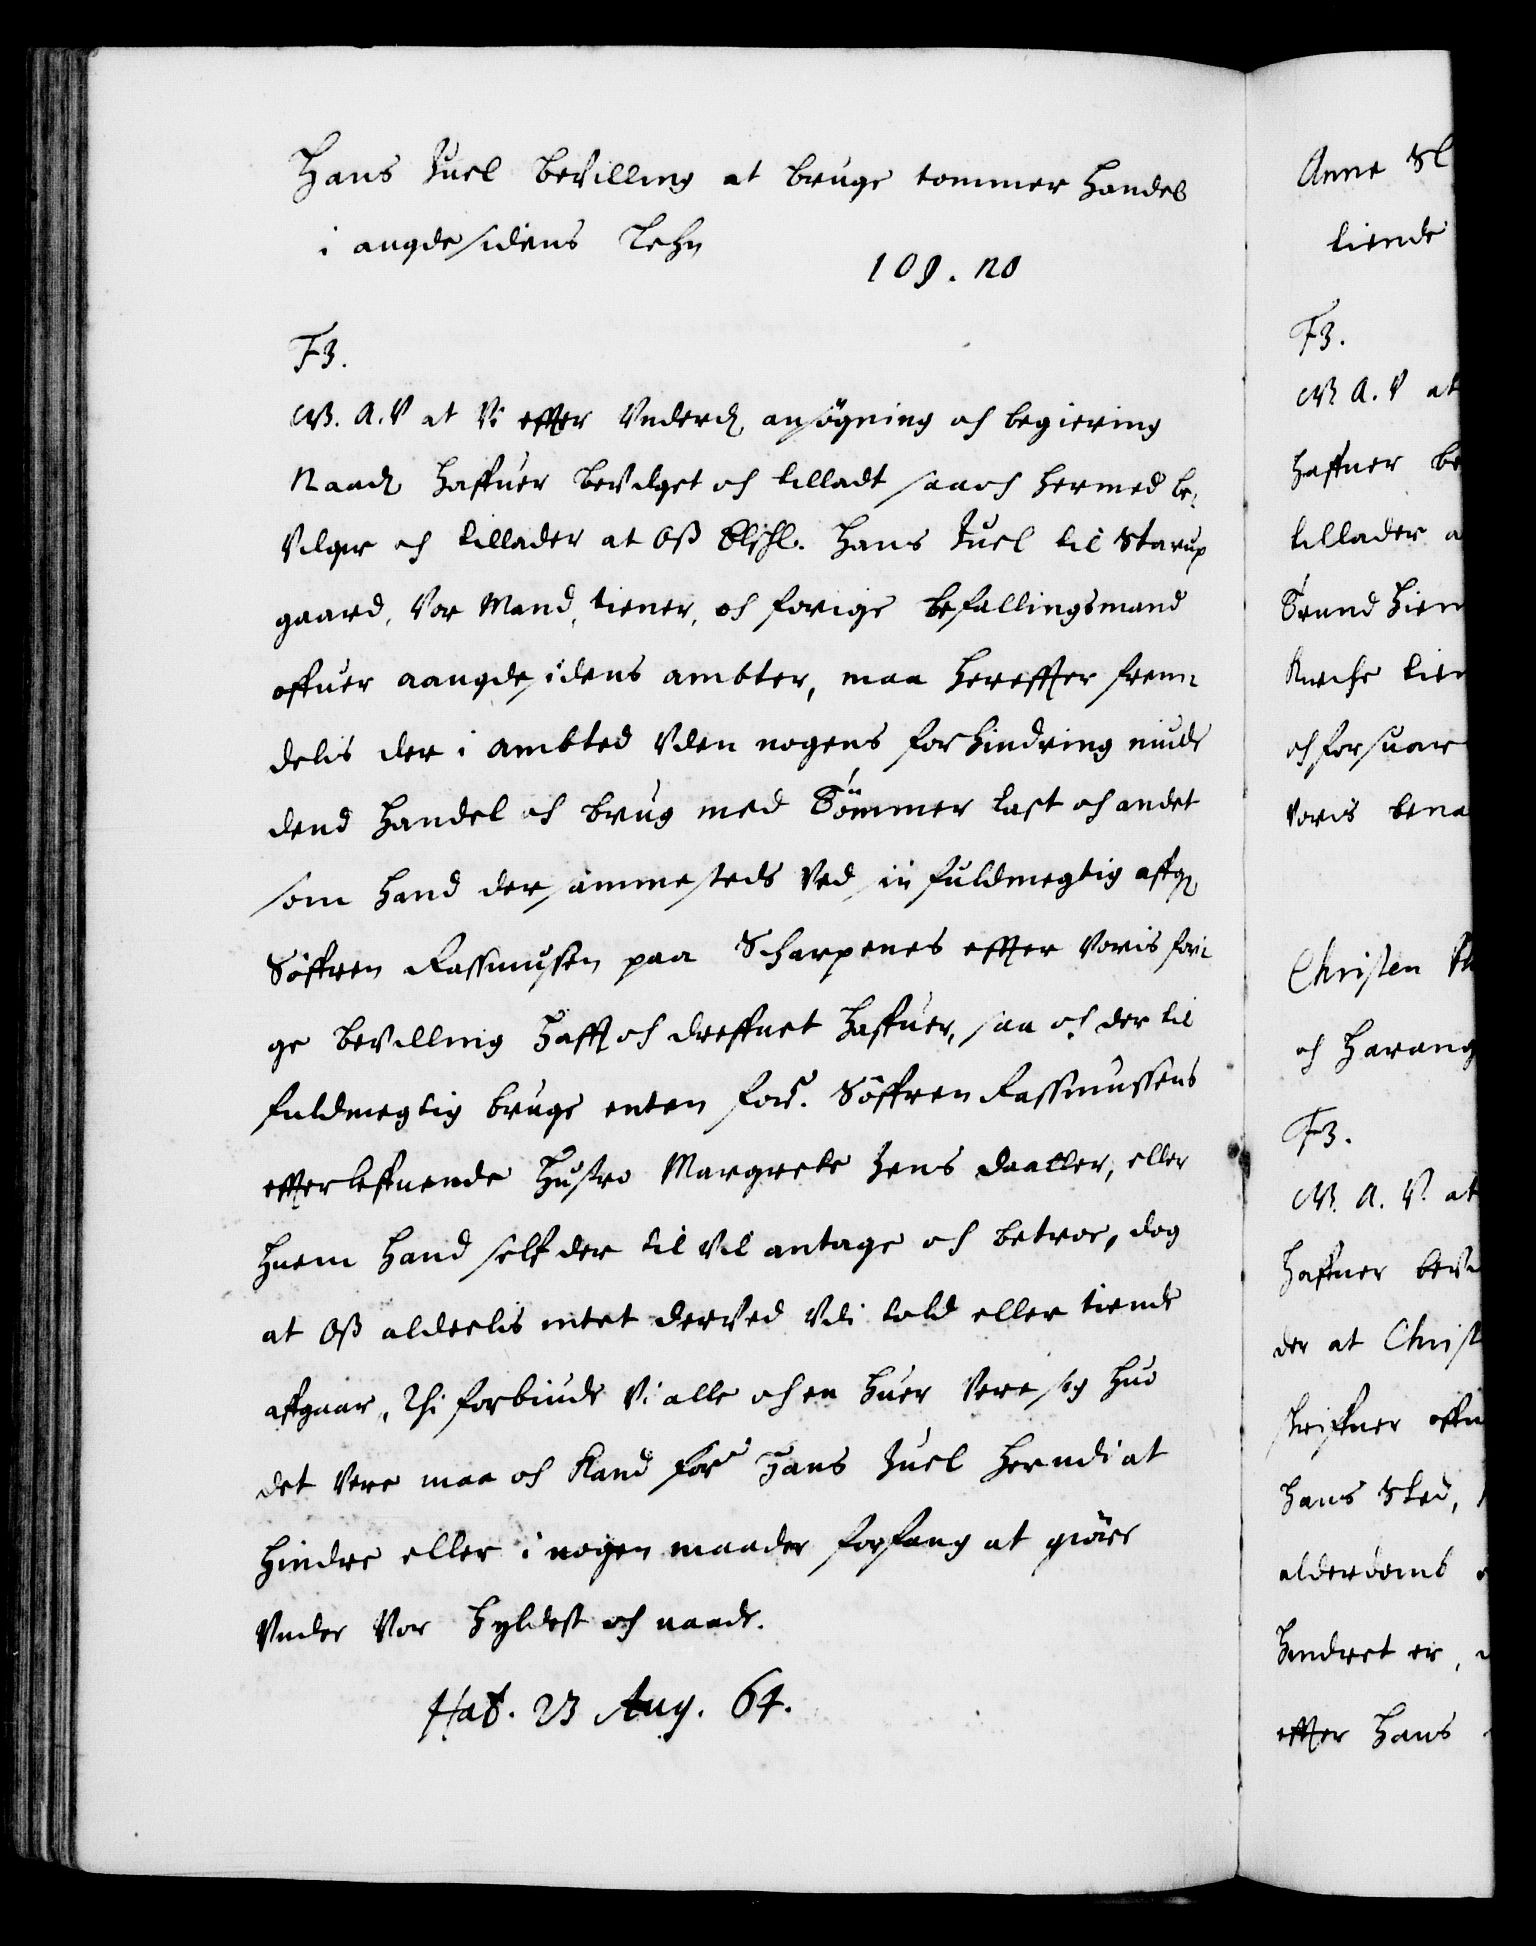 Hans Juel bevilling at bruge tommer Handel
i augdesidens Lehn
109. no
F3.
W. A. V at Vi effter Underd ansögning och begiering
Naad haffuer bevilget och tilladt saa och hermed be-
vilger och tillader at Oss Elschl. Hans Juel til Starup
gaard, Vor Mand, tiener, och forige befallingsmand
offuer aangdesidens ambter, maa hereffter frem-
delis der i ambted Uden nogens forhindring niude
dend Handel och brug med Tömmer last och andet
som hand dersammesteds ved sin fuldmegtig affg
Söffren Rassmussen paa Scharpenes effter voris fori-
ge bevilling hafft och dreffuet haffuer, saa och der til
fuldmegtig bruge enten for. Söffren Rassmussens
effterleffuende Hustro Margrete Jens daatter, eller
huem hand self der til vil antage och betroe, dog
at Oss aldeelis intet derved Udi told eller tiende
affgaar, Thi forbiude Vi alle och en huer være sig huo
det vere maa och kand for Hans Juel herudi at
hindre eller i nogen maader forfang at giöre
Under Vor Hyldest och naade.
Haf. 23 Aug. 64.
Anne
tiende
F3.
W A. V at
haffuer be
tillader a
Trund hiem
Kirche tien
och forsuar
voris bena
Christen
och Harang
F3.
W. A. V. at
haffuer bevi
der at Christ
schriffuer offu
hans Sted,
alderdoms
hindret er,
effter hans